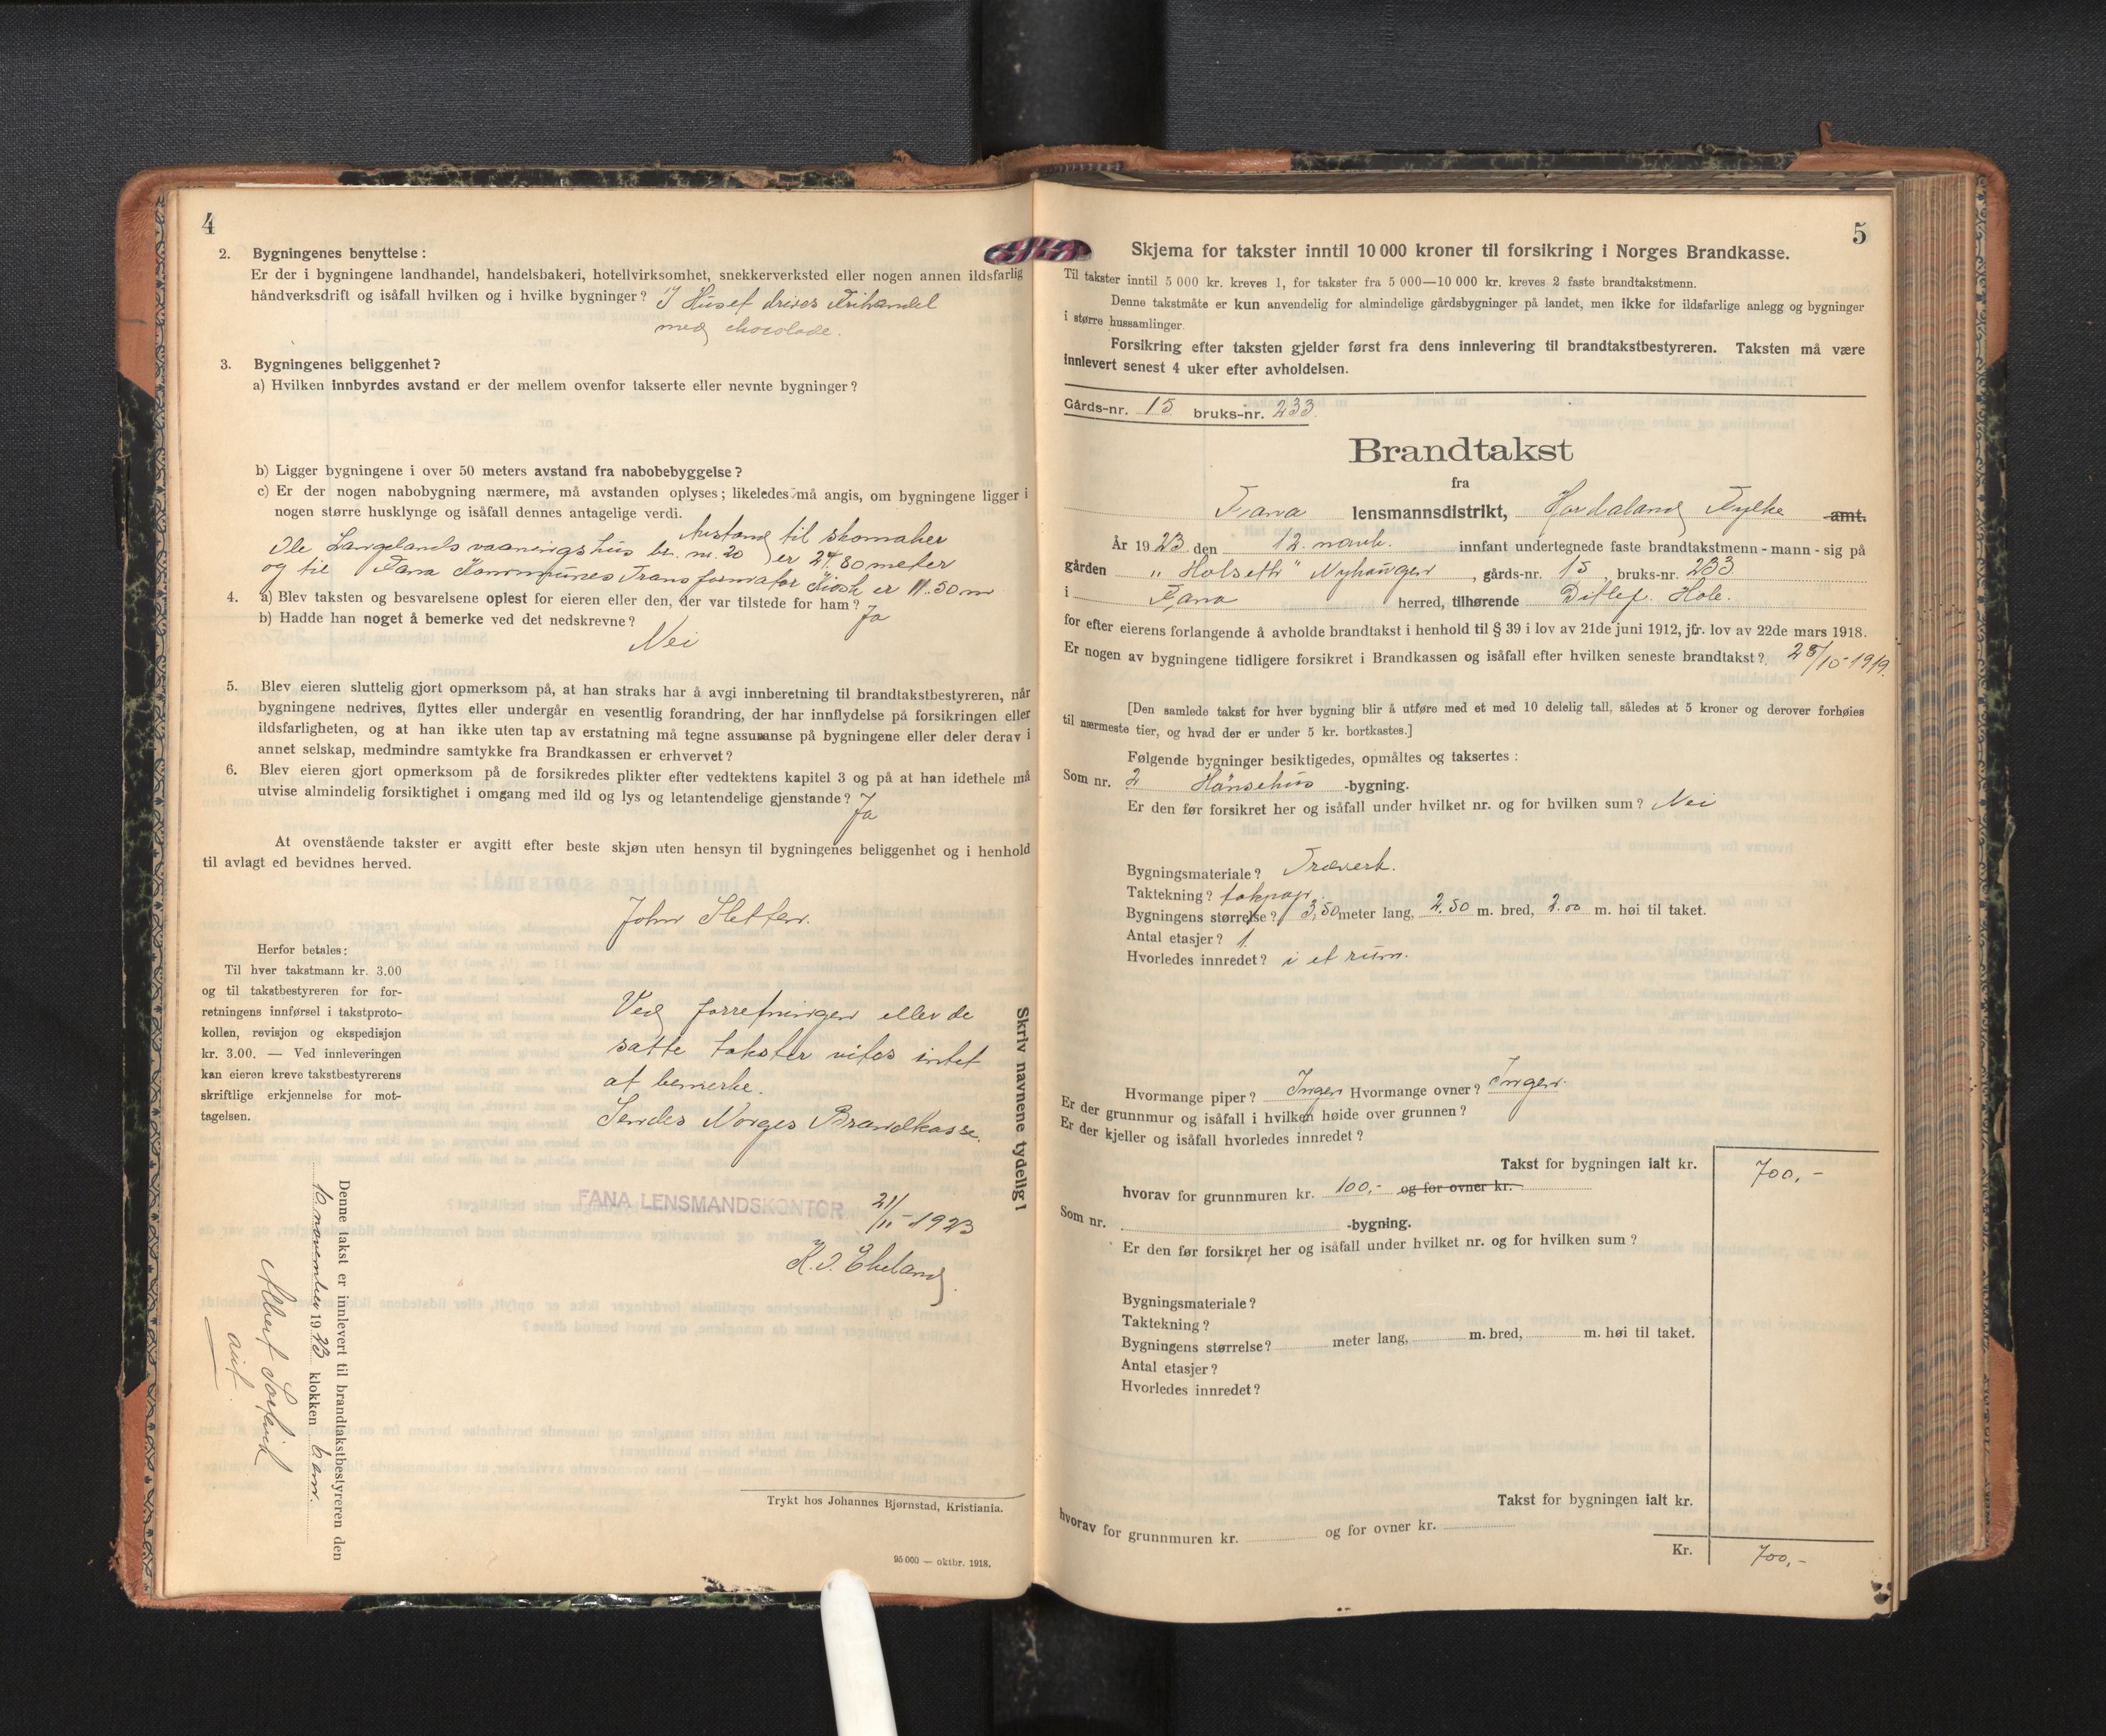 4
2. Bygningenes benyttelse:
Er der i bygningene landhandel, handelsbakeri, hotellvirksomhet, snekkerverksted eller nogen annen ildsfarlig
håndverksdrift og isåfall hvilken og i hvilke bygninger? I Huset drives Frihandel
med chocolade.
3. Bygningenes beliggenhet?
a) Hvilken innbyrdes avstand er der mellem ovenfor takserte eller nevnte bygninger?
b) Ligger bygningene i over 50 meters avstand fra nabobebyggelse?
c) Er der nogen nabobygning nærmere, må avstanden oplyses; likeledes må angis, om bygningene ligger i
nogen større husklynge og isåfall dennes antagelige verdi.
Avstand til skomaker
Ole Langelands vaaningshus br. nr. 20 er 24.80 meter
og til Fana Kommunes Transformator Kiosk er 11.50 m
4. a) Blev taksten og besvarelsene oplest for eieren eller den, der var tilstede for ham? Ja
b) Hadde han noget å bemerke ved det nedskrevne?
Nei
5. Blev eieren sluttelig gjort opmerksom på, at han straks har å avgi innberetning til brandtakstbestyreren, når
bygningene nedrives, flyttes eller undergår en vesentlig forandring, der har innflydelse på forsikringen eller
ildsfarligheten, og at han ikke uten tap av erstatning må tegne assuranse på bygningene eller deler derav i
annet selskap, medmindre samtykke fra Brandkassen er erhvervet?
6. Blev eieren gjort opmerksom på de forsikredes plikter efter vedtektens kapitel 3 og på at han idethele må
utvise almindelig forsiktighet i omgang med ild og lys og letantendelige gjenstande? Ja
At ovenstående takster er avgitt efter beste skjøn uten hensyn til bygningenes beliggenhet og i henhold
til avlagt ed bevidnes herved.
John Sletten.
Herfor betales:
Til hver takstmann kr. 3.00
og til takstbestyreren for for-
retningens innførsel i takstproto-
kollen, revisjon og ekspedisjon
kr. 3.00. — Ved innleveringen
kan eieren kreve takstbestyrerens
skriftlige erkjennelse for mot-
tagelsen.
Ved forretningen eller de
satte takster vites intet
at bemerke.
Sendes Norges Brandkasse.
FANA LENSMANDSKONTOR 21/11-1923
Skriv navnene tydelig!
Denne takst er innlevert til brandtakstbestyreren den
19 23 klokken 6 em.
Albert
Trykt hos Johannes Bjørnstad, Kristiania.
95 000 — oktbr. 1918.
5
Skjema for takster inntil 10 000 kroner til forsikring i Norges Brandkasse.
Til takster inntil 5 000 kr. kreves 1, for takster fra 5 000—10 000 kr. kreves 2 faste brandtakstmenn.
Denne takstmåte er kun anvendelig for almindelige gårdsbygninger på landet, men ikke for ildsfarlige anlegg og bygninger
i større hussamlinger.
Forsikring efter taksten gjelder først fra dens innlevering til brandtakstbestyreren. Taksten må være
innlevert senest 4 uker efter avholdelsen.
Gårds-nr. 15 bruks-nr. 233.
Brandtakst
fra
Fana lensmannsdistrikt, Hordaland Fylke amt.
År 1923 den 12 novb. innfant undertegnede faste brandtakstmenn - mann - sig på
gården „Holseth" Nyhaugen, gårds-nr. 15, bruks-nr. 233
i Fana herred, tilhørende Ditlef Hole.
for efter eierens forlangende å avholde brandtakst i henhold til § 39 i lov av 21de juni 1912, jfr. lov av 22de mars 1918.
Er nogen av bygningene tidligere forsikret i Brandkassen og isåfall efter hvilken seneste brandtakst? 28/10-1919.
[Den samlede takst for hver bygning blir å utføre med et med 10 delelig tall, således at 5 kroner og derover forhøies
til nærmeste tier, og hvad der er under 5 kr. bortkastes.]
Følgende bygninger besiktigedes, opmåltes og taksertes:
Som nr. 2 Hönsehus -bygning.
Er den før forsikret her og isåfall under hvilket nr. og for hvilken sum? Nei
Bygningsmateriale? Træverk.
Taktekning? takpap
Bygningens størrelse? 3,50 meter lang, 2.50 m. bred, 2.00 m. høi til taket.
Antal etasjer? 1
Hvorledes innredet? i et rum.
Hvormange piper? Ingen Hvormange ovner? Ingen.
Er der grunnmur og isåfall i hvilken høide over grunnen?
Er der kjeller og isåfall hvorledes innredet?
Takst for bygningen ialt kr. 700,-
hvorav for grunnmuren kr. 100,- og for ovner kr.
Som nr. -bygning.
Er den før forsikret her og isåfall under hvilket nr. og for hvilken sum?
Bygningsmateriale?
Taktekning?
Bygningens størrelse? meter lang, m. bred, m. høi til taket.
Antal etasjer?
Hvorledes innredet?
Takst for bygningen ialt kr.
hvorav for grunnmuren kr. og for ovner kr.
Kr. 700,-